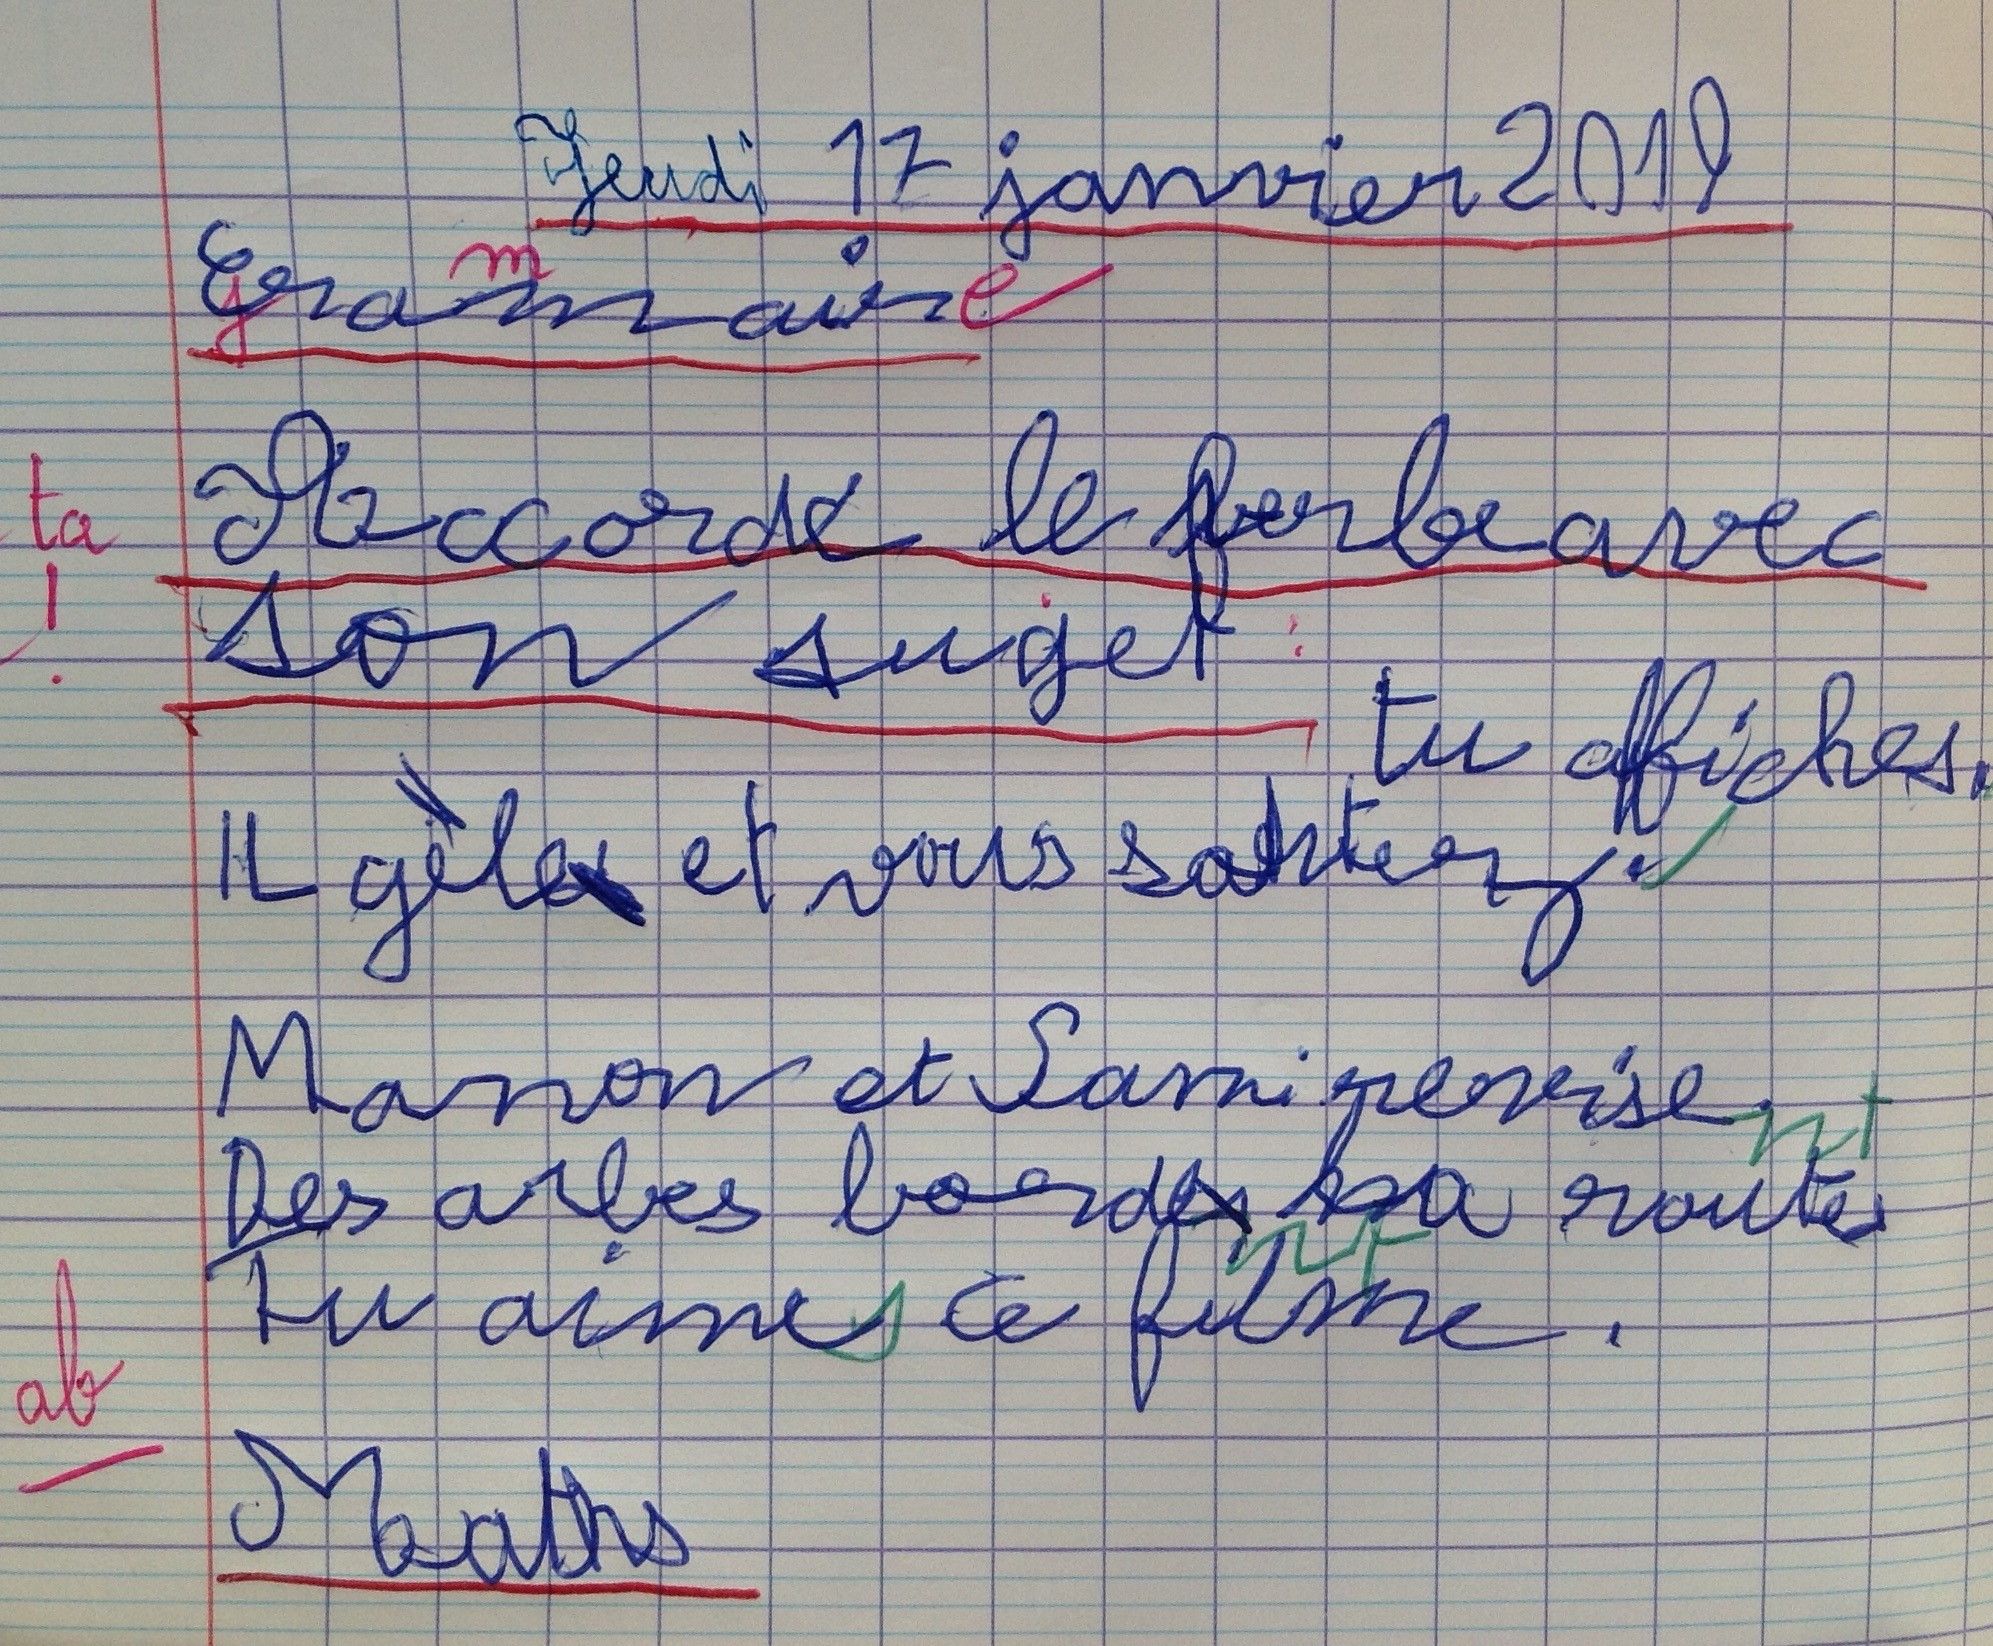 Jeudi 17 janvier 2019
m
Gramaire
ta
Accorde le verbe avec
!
son suget :
tu affiches.
IL gèle et vous sautez.
Manon et Sami reverise.
nt
Des arbes borde la route
nt
Tu aimes ce filme.
ab
Maths